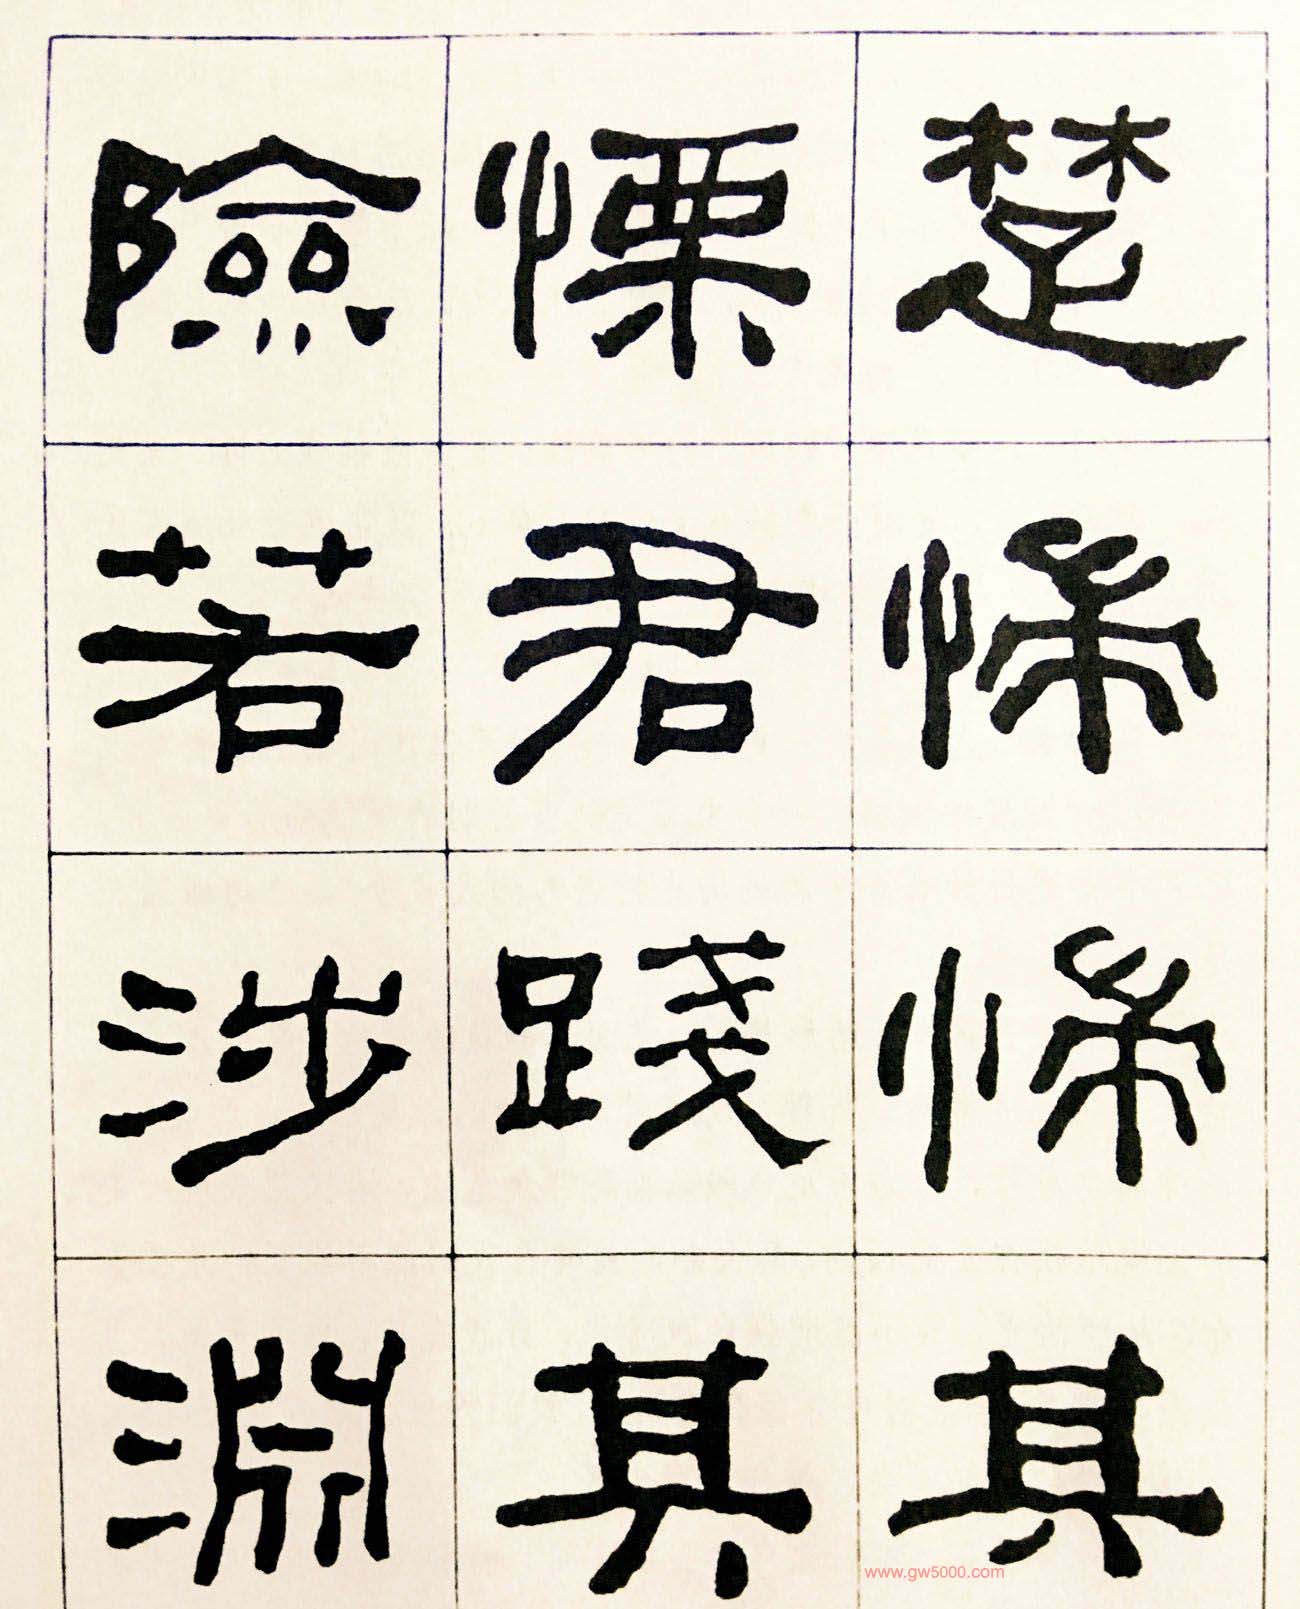 楚惴惴其
慄君踐其
險若涉淵
www.gw5000.com